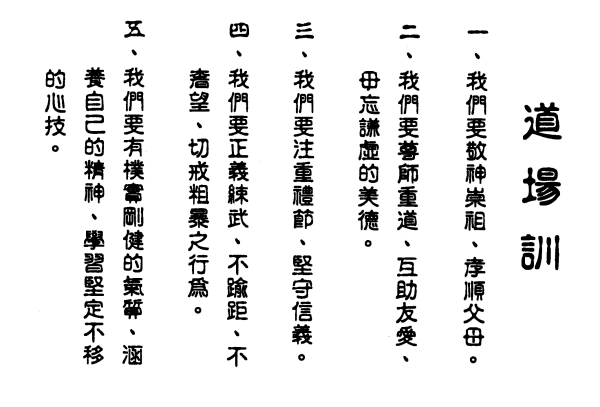 道場訓
一、我們要敬神崇祖、孝順父母。
二、我們要尊師重道、互助友愛、
毋忘謙虛的美德。
三、我們要注重禮節、堅守信義。
四、我們要正義練武、不踰距、不
奢望、切戒粗暴之行為。
五、我們要有樸實剛健的氣質、涵
養自己的精神、學習堅定不移
的心技。